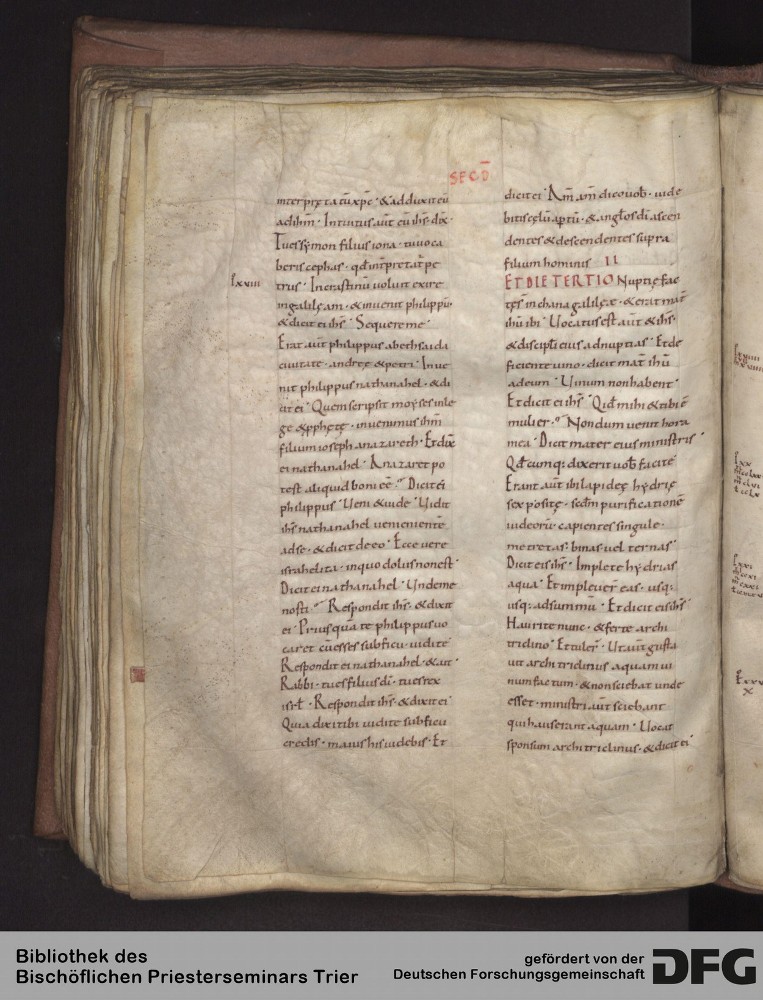 SECD̄
interpr&ecedil;tatū xp̄c · & adduxit eū
adihm̄ · Intuitus aut̄ eū ihs̄ · dix̄ ·
Tu es symon filius iona · tu uoca
beris cephas · qd̄ int̄pretat̄ pe
lxxiii
trus · In crastinū uoluit exire
in galileam · & inuenit philippū ·
& dicit ei ihs̄ · Sequere me ·
Erat aut̄ philippus a bethsaida
ciuitate · andreę & petri · Inue
nit philippus nathanahel · & di
cit ei · Quem scripsit moyses in le
ge & pphetę · inuenimus ihm̄
filium ioseph a nazareth · Et dix̄
ei nathanahel · A nazaret po
test aliquid boni eē · Dicit ei
philippus · Ueni & uide · Uidit
ihs̄ nathanahel uenientē
ad se · & dicit de eo · Ecce uere
israhelita · in quo dolus non est ·
Dicit ei nathanahel · Unde me
nosti · Respondit ihs̄ · & dixit
ei · Priusquā te philippus uo
caret cū esses sub ficu · uidi te
Respondit ei nathanahel · & ait ·
Rabbi · tu es filius dī · tu es rex
isrl̄ · Respondit ihs̄ · & dixit ei
Quia dixi tibi uidi te sub ficu
credis · maius his uidebis · Et
dicit ei · Am̄ am̄ dico uob̄ · uide
bitis cęlū aptū · & anglos dī ascen
dentes & descendentes supra
filium hominis II
ET DIE TERTIO Nuptię fac
tę s̄ in chana galileę · & erat mat̄
ihū ibi · Uocatus est aut̄ & ihs̄ ·
& discipli eius ad nuptias · Et de
ficiente uino · dicit mat̄ ihū
ad eum · Uinum non habent ·
Et dicit ei ihs̄ · Qid mihi & tibi ē
mulier · Nondum uenit hora
mea · Dicit mater eius ministris ·
Qd̄cumq; dixerit uob̄ facite
Erant aut̄ ibi lapideę hydrię
sex positę · secdm̄ purificationē
iudeorū · capientes singulę ·
metretas · binas uel ternas ·
Dicit eis ihs̄ · Implete hydrias
aqua · Et impleuer̄ eas · usq;
usq; ad summū · Et dicit eis ihs̄ ·
Haurite nunc · & ferte archi
triclino · Et tuler̄ · Ut aut̄ gusta
uit architriclinus aquam ui
num factum · & non sciebat unde
esset · ministri aut̄ sciebant
qui hauserant aquam · Uocat
sponsum architriclinus · & dicit ei
Bibliothek des
Bischöflichen Priesterseminars Trier
gefördert von der
Deutschen Forschungsgemeinschaft
DFG